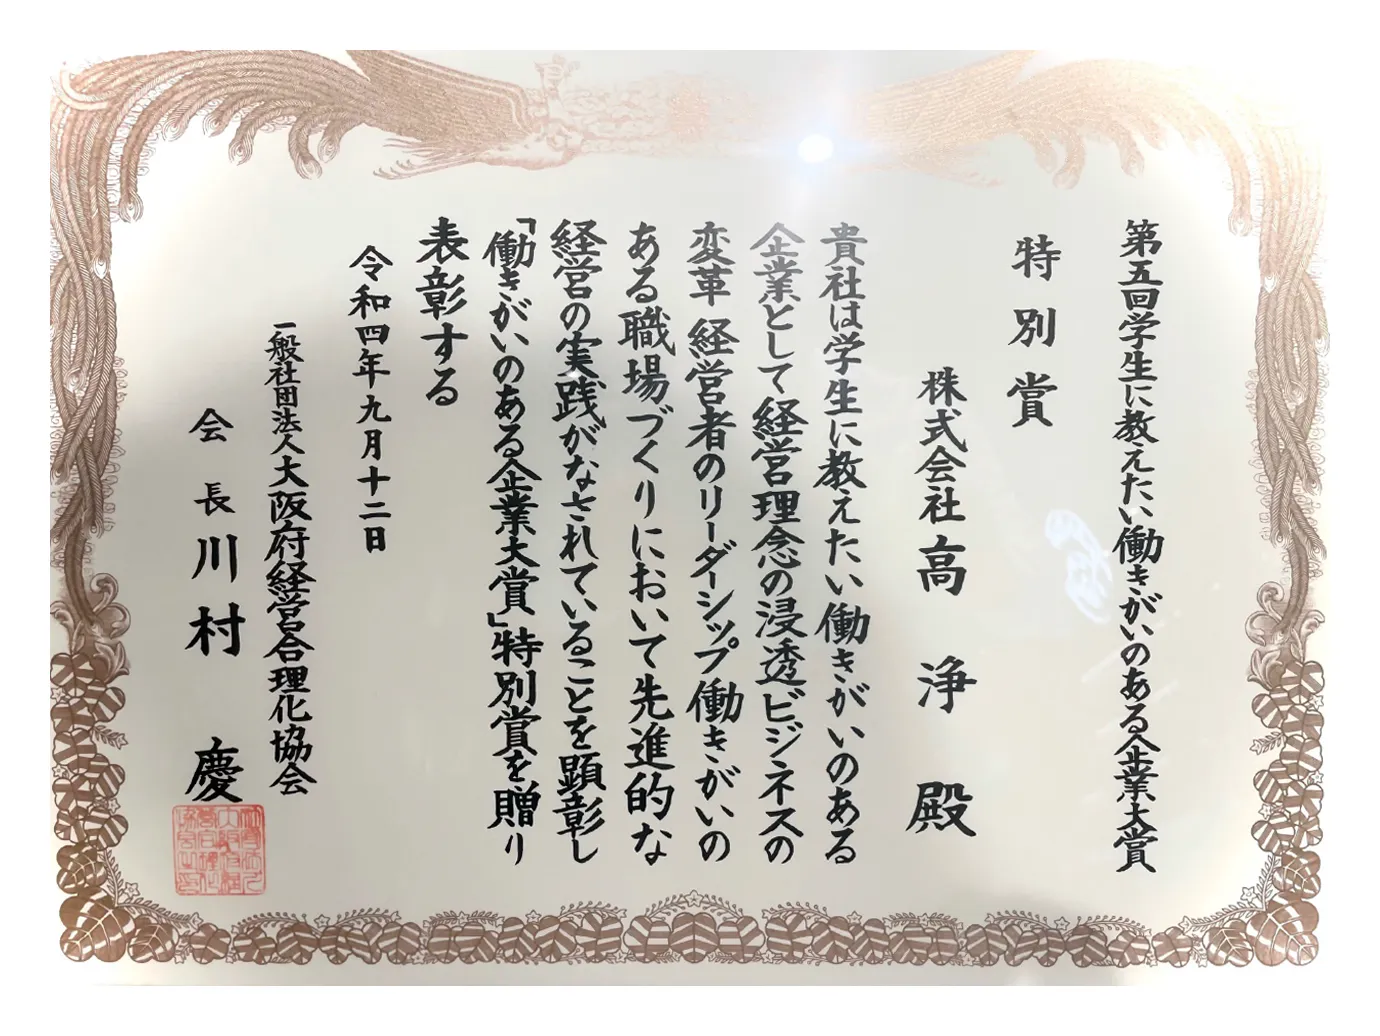 第五回学生に教えたい働きがいのある企業大賞
特別賞
株式会社高浄殿
貴社は学生に教えたい働きがいのある
企業として経営理念の浸透ビジネスの
変革 経営者のリーダーシップ働きがいの
ある職場づくりにおいて先進的な
経営の実践がなされていることを顕彰し
「働きがいのある企業大賞」特別賞を贈り
表彰する
令和四年九月十二日
一般社団法人大阪府経営合理化協会
会長川村慶